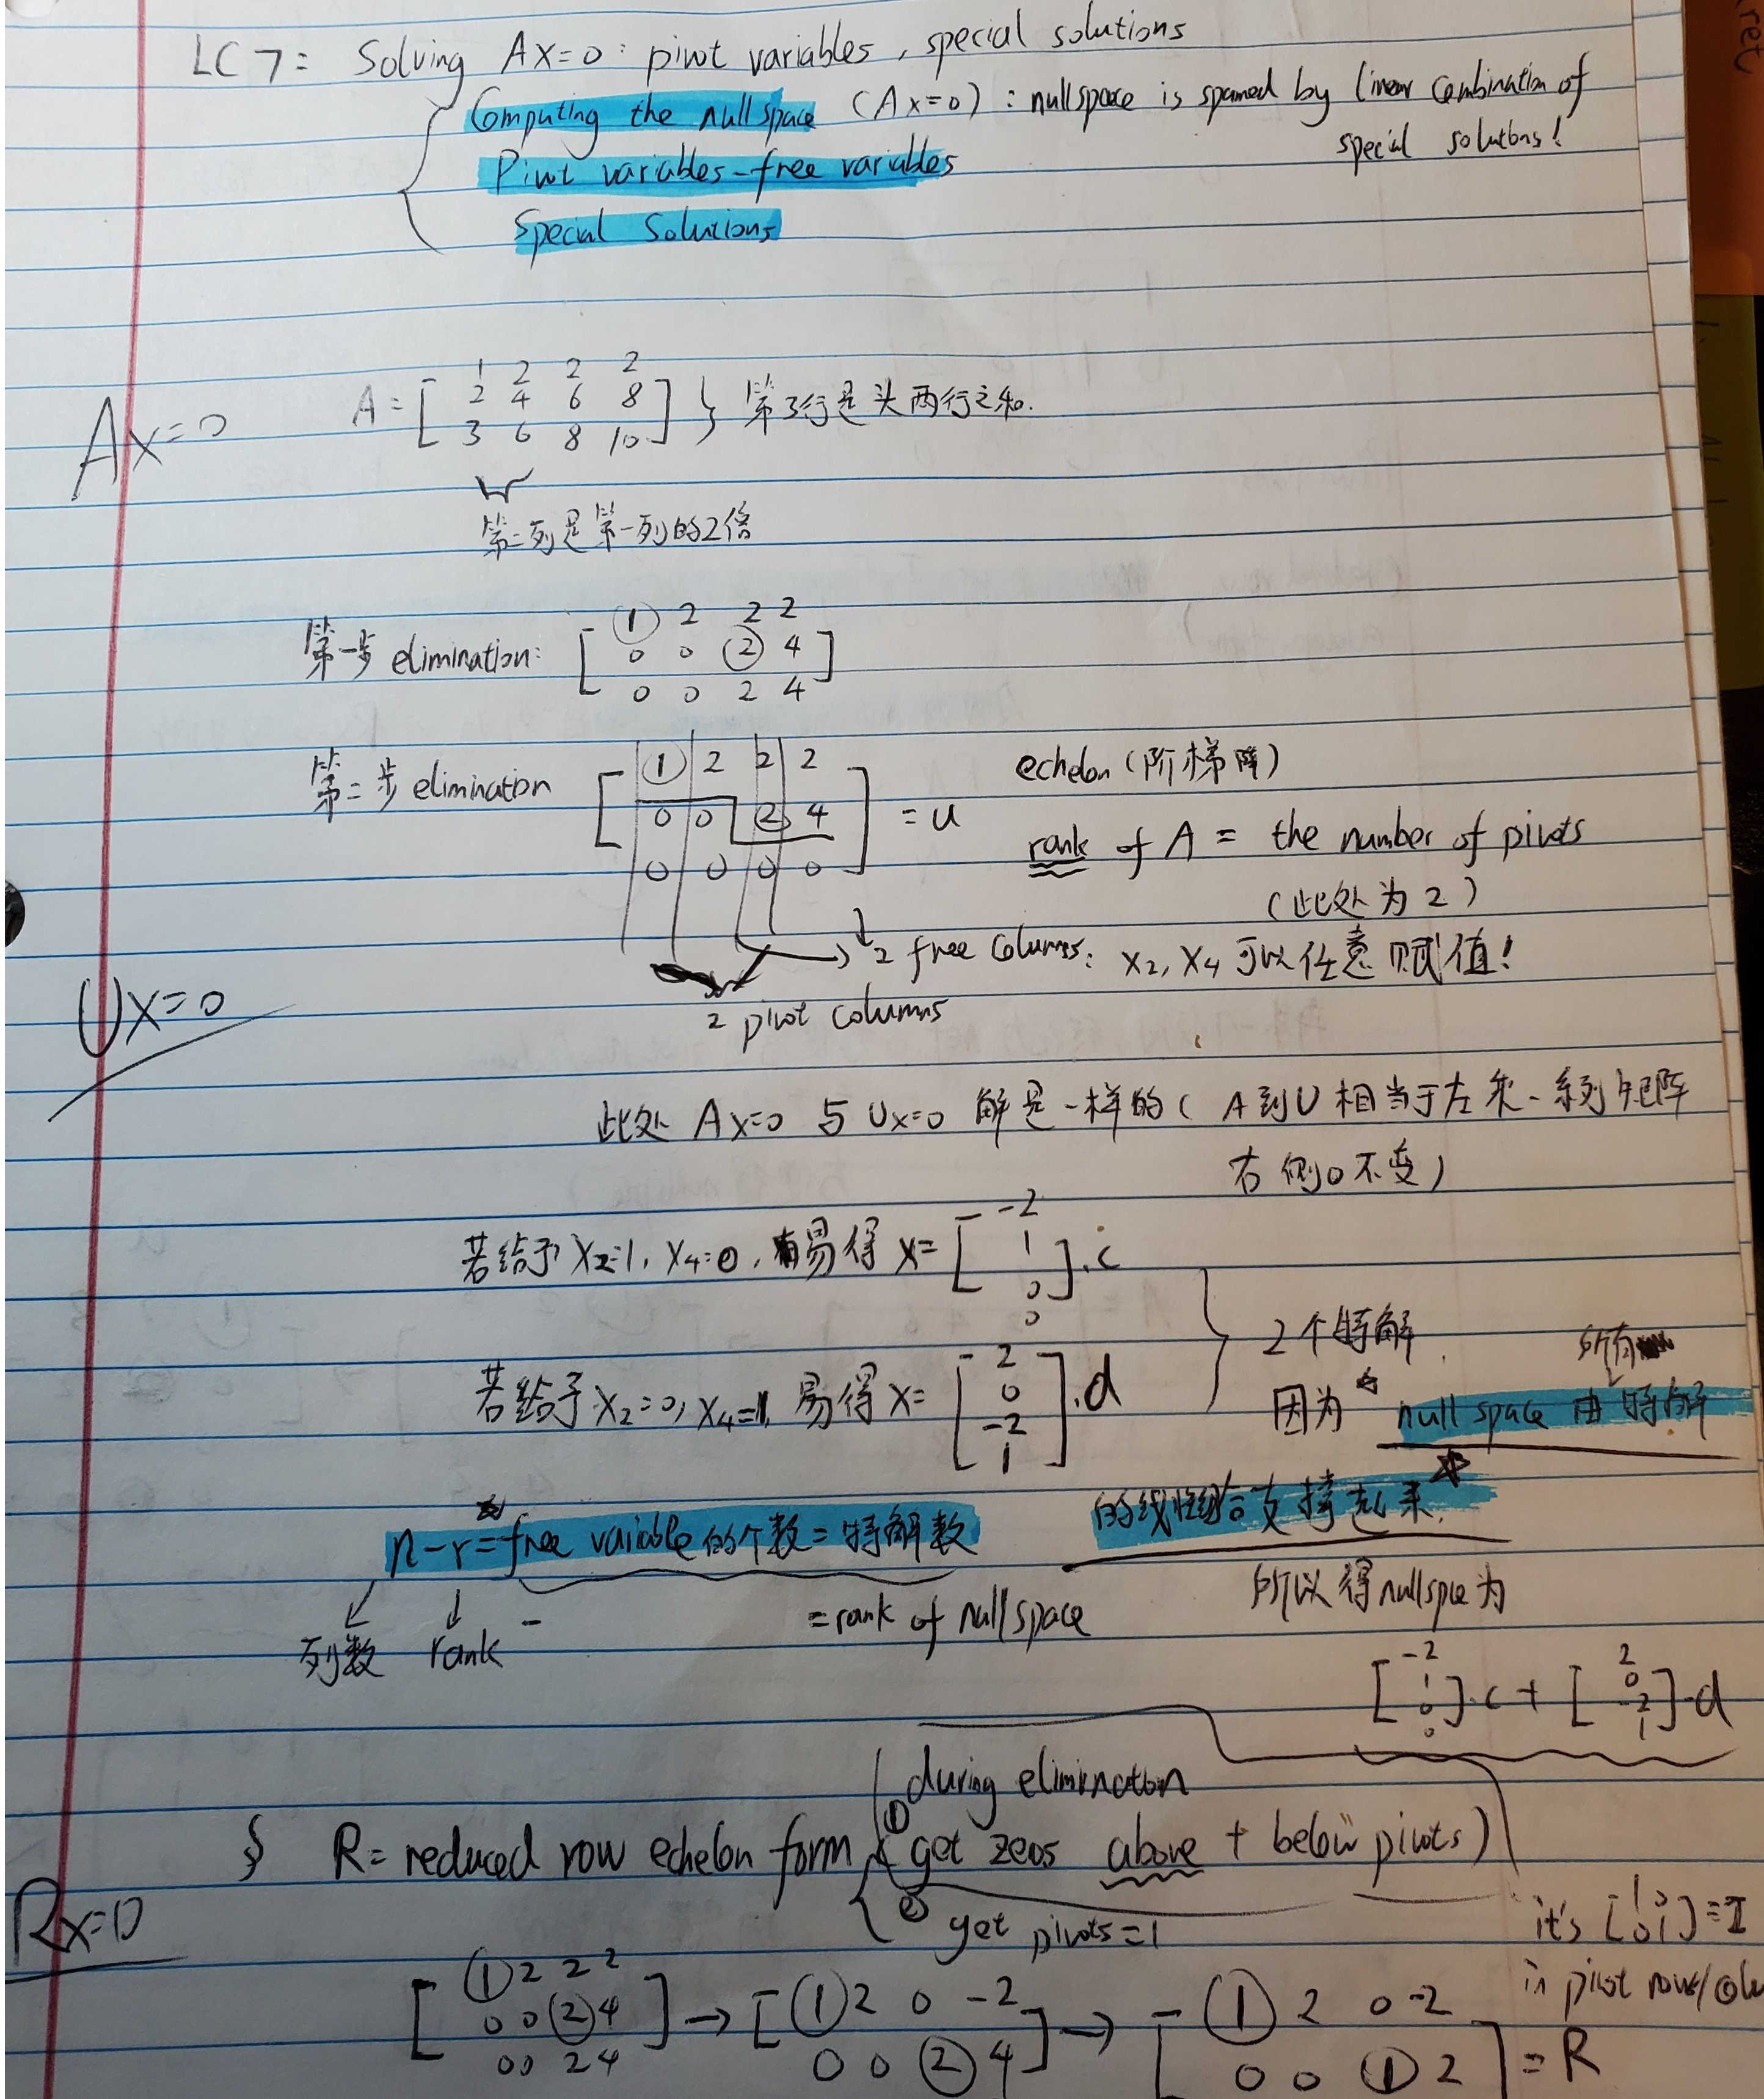 LC 7: Solving Ax=0: pivot variables, special solutions
Computing the nullspace (Ax=0): nullspace is spanned by linear combination of
special solutions!
Pivot variables-free variables
Special Solutions
Ax=0
A=[
1 2 2 2
2 4 6 8
3 6 8 10
] } 第3行是头两行之和.
第二列是第一列的2倍
第一步 elimination:
1 2 2 2
0 0 2 4
0 0 2 4
第二步 elimination
1 2 2 2
0 0 2 4
0 0 0 0
= U
echelon (阶梯阵)
rank of A = the number of pivots
(此处为2)
→ 2 free columns: X2, X4 可以任意赋值!
2 pivot columns
Ux=0
此处 Ax=0 与 Ux=0 解是一样的 ( A到U相当于左乘一系列矩阵
右侧0不变)
若给予 X2=1, X4=0, 易得 X= [ -2 1 0 0 ] · c
若给予 X2=0, X4=1, 易得 X= [ 2 0 -2 1 ] · d
2个特解
因为 null space 由 所有 特解
的线性组合支撑起来.
n-r = free vaiable的个数 = 特解数
列数 rank
= rank of nullspace
所以得 nullspce 为
[ -2 1 0 0 ] · c + [ 2 0 -2 1 ] · d
Rx=0
§ R= reduced row echelon form
① during elimination
get zeos above + below pivots)
② get pivots=1
it's [ 1 0 0 1 ] = I
in pivot rows/
1 2 2 2
0 0 2 4
0 0 2 4
→
1 2 0 -2
0 0 2 4
→
1 2 0 -2
0 0 1 2
= R